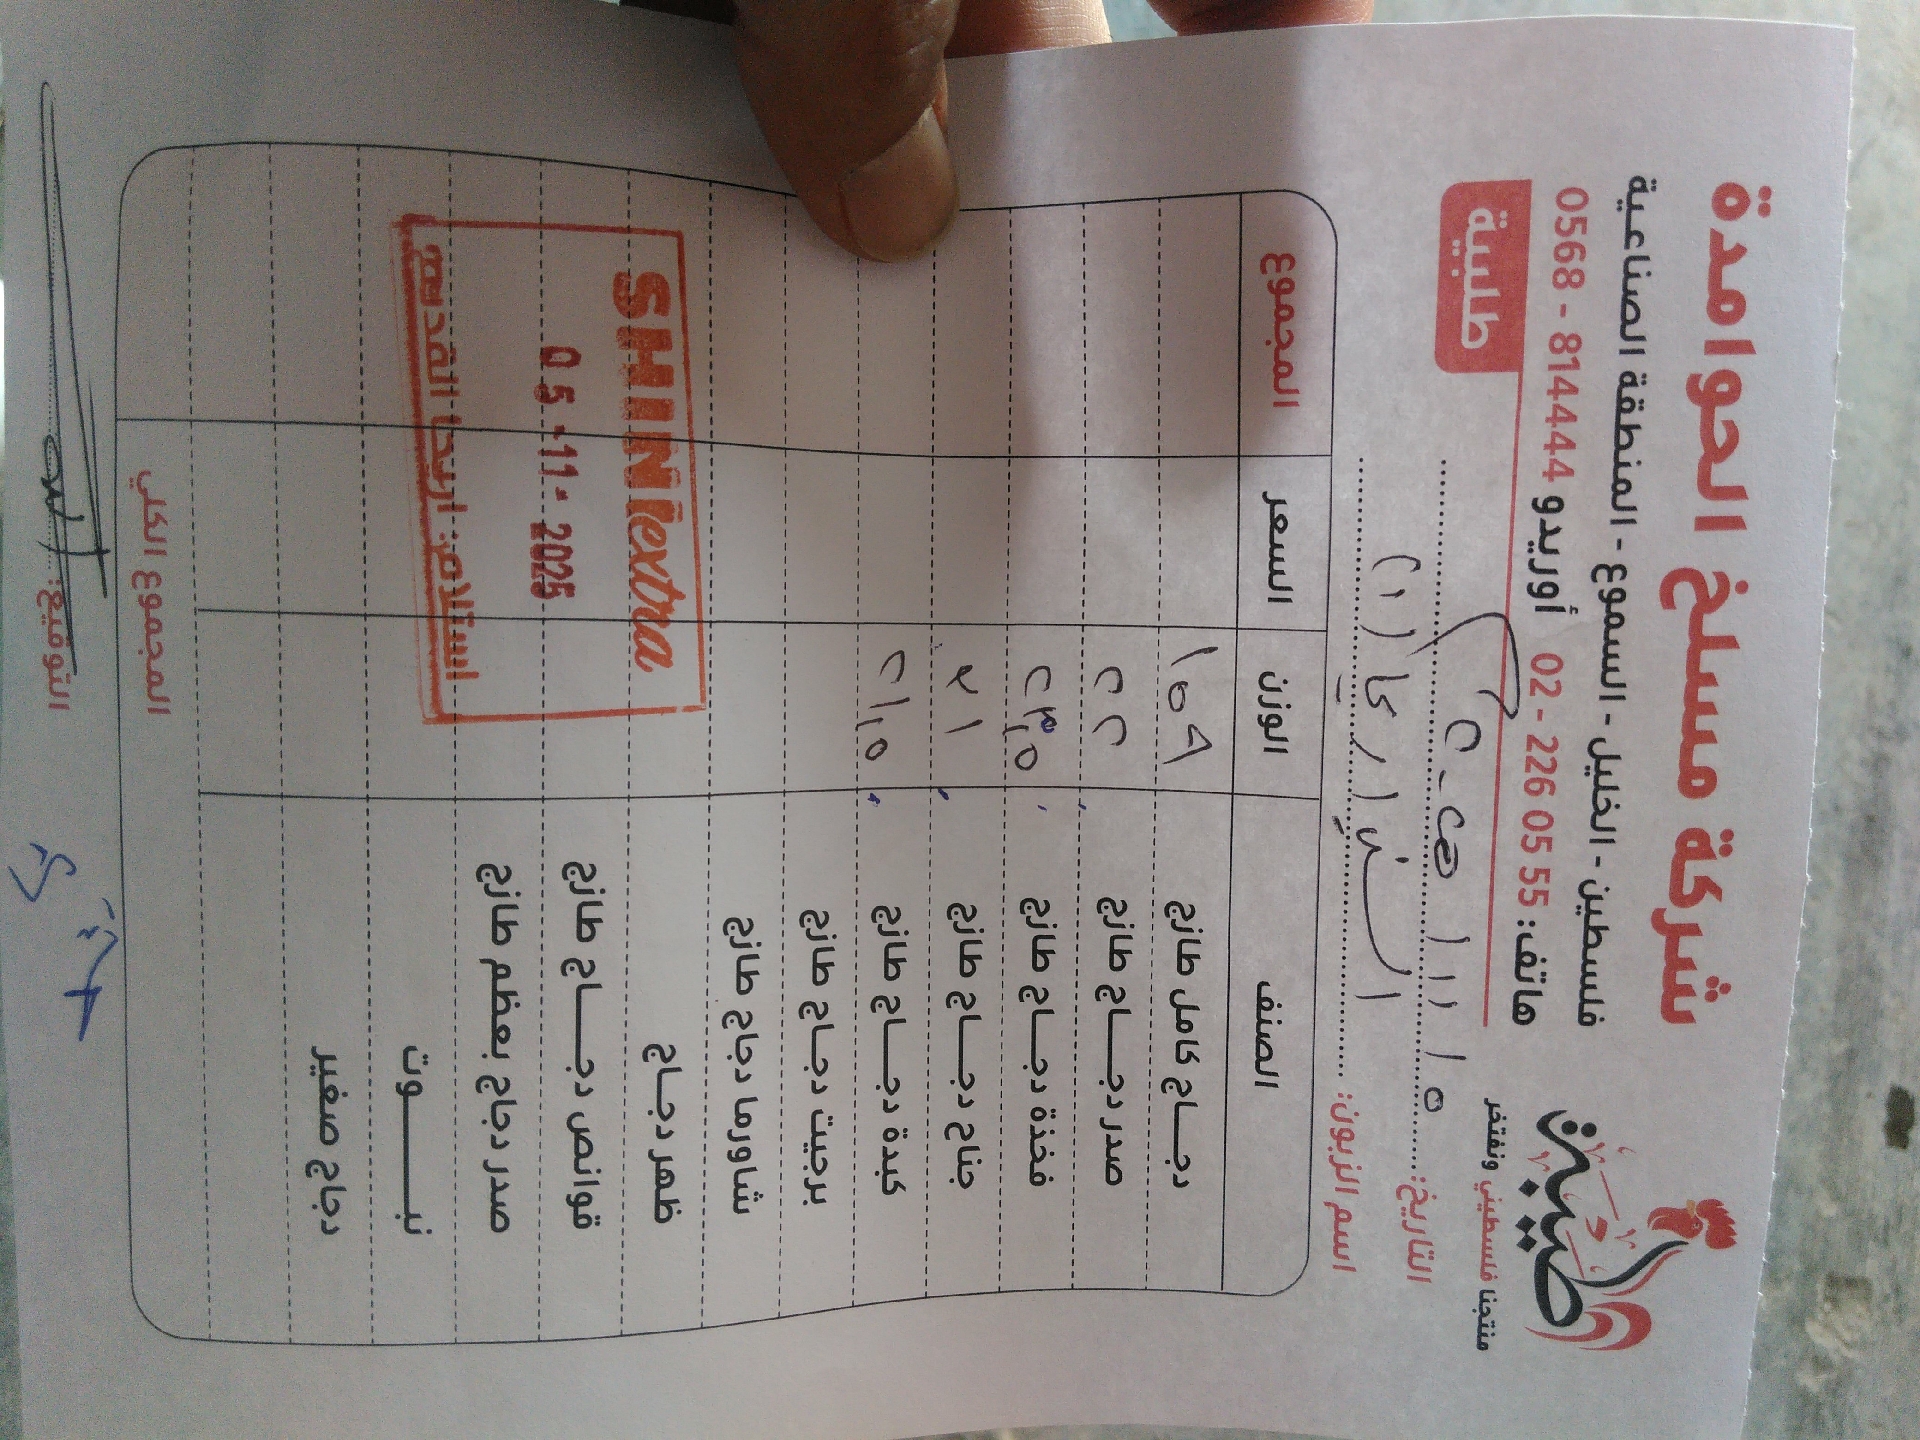 شركة مسلخ الحوامدة
فلسطين - الخليل - السموع - المنطقة الصناعية
هاتف: 02 - 226 05 55 أوريدو 0568 - 814444
طلبية
طيبين
منتجنا فلسطيني ونفتخر
التاريخ: ٥ / ١١ /
اسم الزبون: / أريحا (١)
الصنف الوزن السعر المجموع
دجـــاج كامل طازج ١٥٩
صدر دجـــاج طازج ٢٢
فخذة دجـــاج طازج ٢٣,٥
جناح دجـــاج طازج ٢١
كبدة دجـــاج طازج ٢١,٥
برجيت دجـــاج طازج
شاورما دجاج طازج
ظهر دجـــاج
قوانص دجـــاج طازج
صدر دجاج بعظم طازج
نبـــــوت
دجاج صغير
SHINIextra
05 -11- 2025
استلام: اريحا القديم
المجموع الكلي
التوقيع: